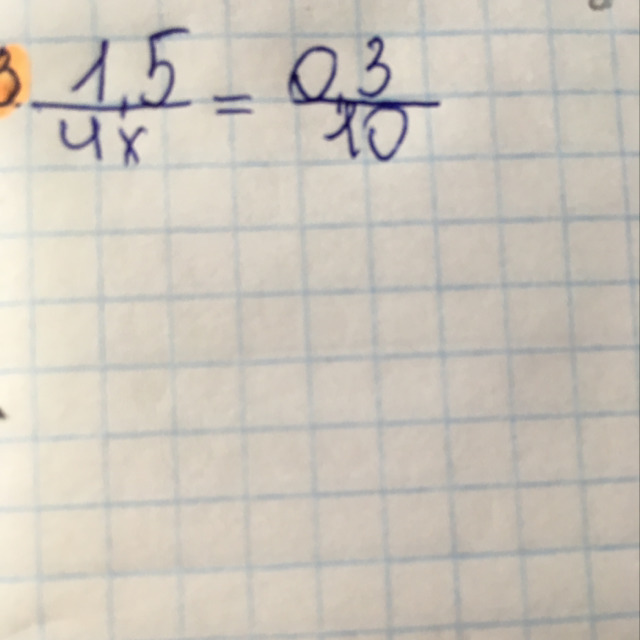 3 1,5/4x = 0,3/10